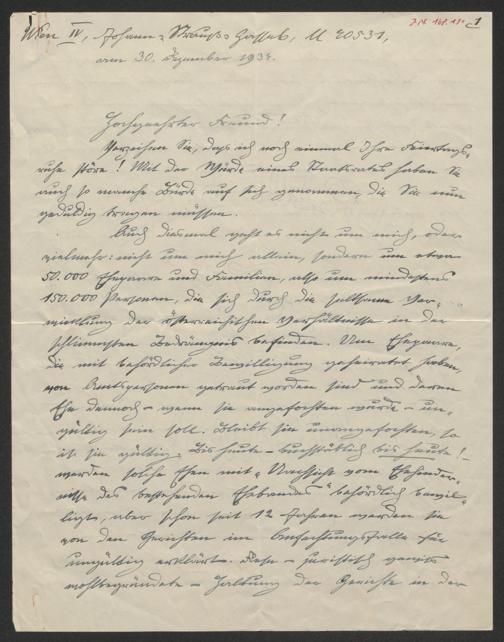 Wien IV, Johann-Strauß-Gasse 6, U 20531,
am 30. Dezember 1934.
Hochgeehrter Freund!
Verzeihen Sie, daß ich noch einmal Ihre Feiertags-
ruhe störe! Mit der Würde eines Staatsrates haben Sie
auch so manche Bürde auf sich genommen, die Sie nun
geduldig tragen müssen.
Auch diesmal geht es nicht um mich, oder
vielmehr: nicht um mich allein, sondern um etwa
50.000 Ehepaare und Familien, also um mindestens
150.000 Personen, die sich durch die seltsame Ver-
wicklung der österreichischen Verhältnisse in der
schlimmsten Bedrängnis befinden. Um Ehepaare,
die mit behördlicher Bewilligung geheiratet haben,
von Amtspersonen getraut worden sind und deren
Ehe dennoch – wenn sie angefochten wurde – un-
gültig sein soll. Bleibt sie unangefochten, so
ist sie gültig. Bis heute – buchstäblich bis heute! –
werden solche Ehen mit „Nachsicht vom Ehehinder-
nisse des bestehenden Ehebandes“ behördlich bewil-
ligt, aber schon seit 12 Jahren werden sie
von den Gerichten im Anfechtungsfalle für
ungültig erklärt. Diese – juristisch gewiß
wohlbegründete – Haltung der Gerichte in der